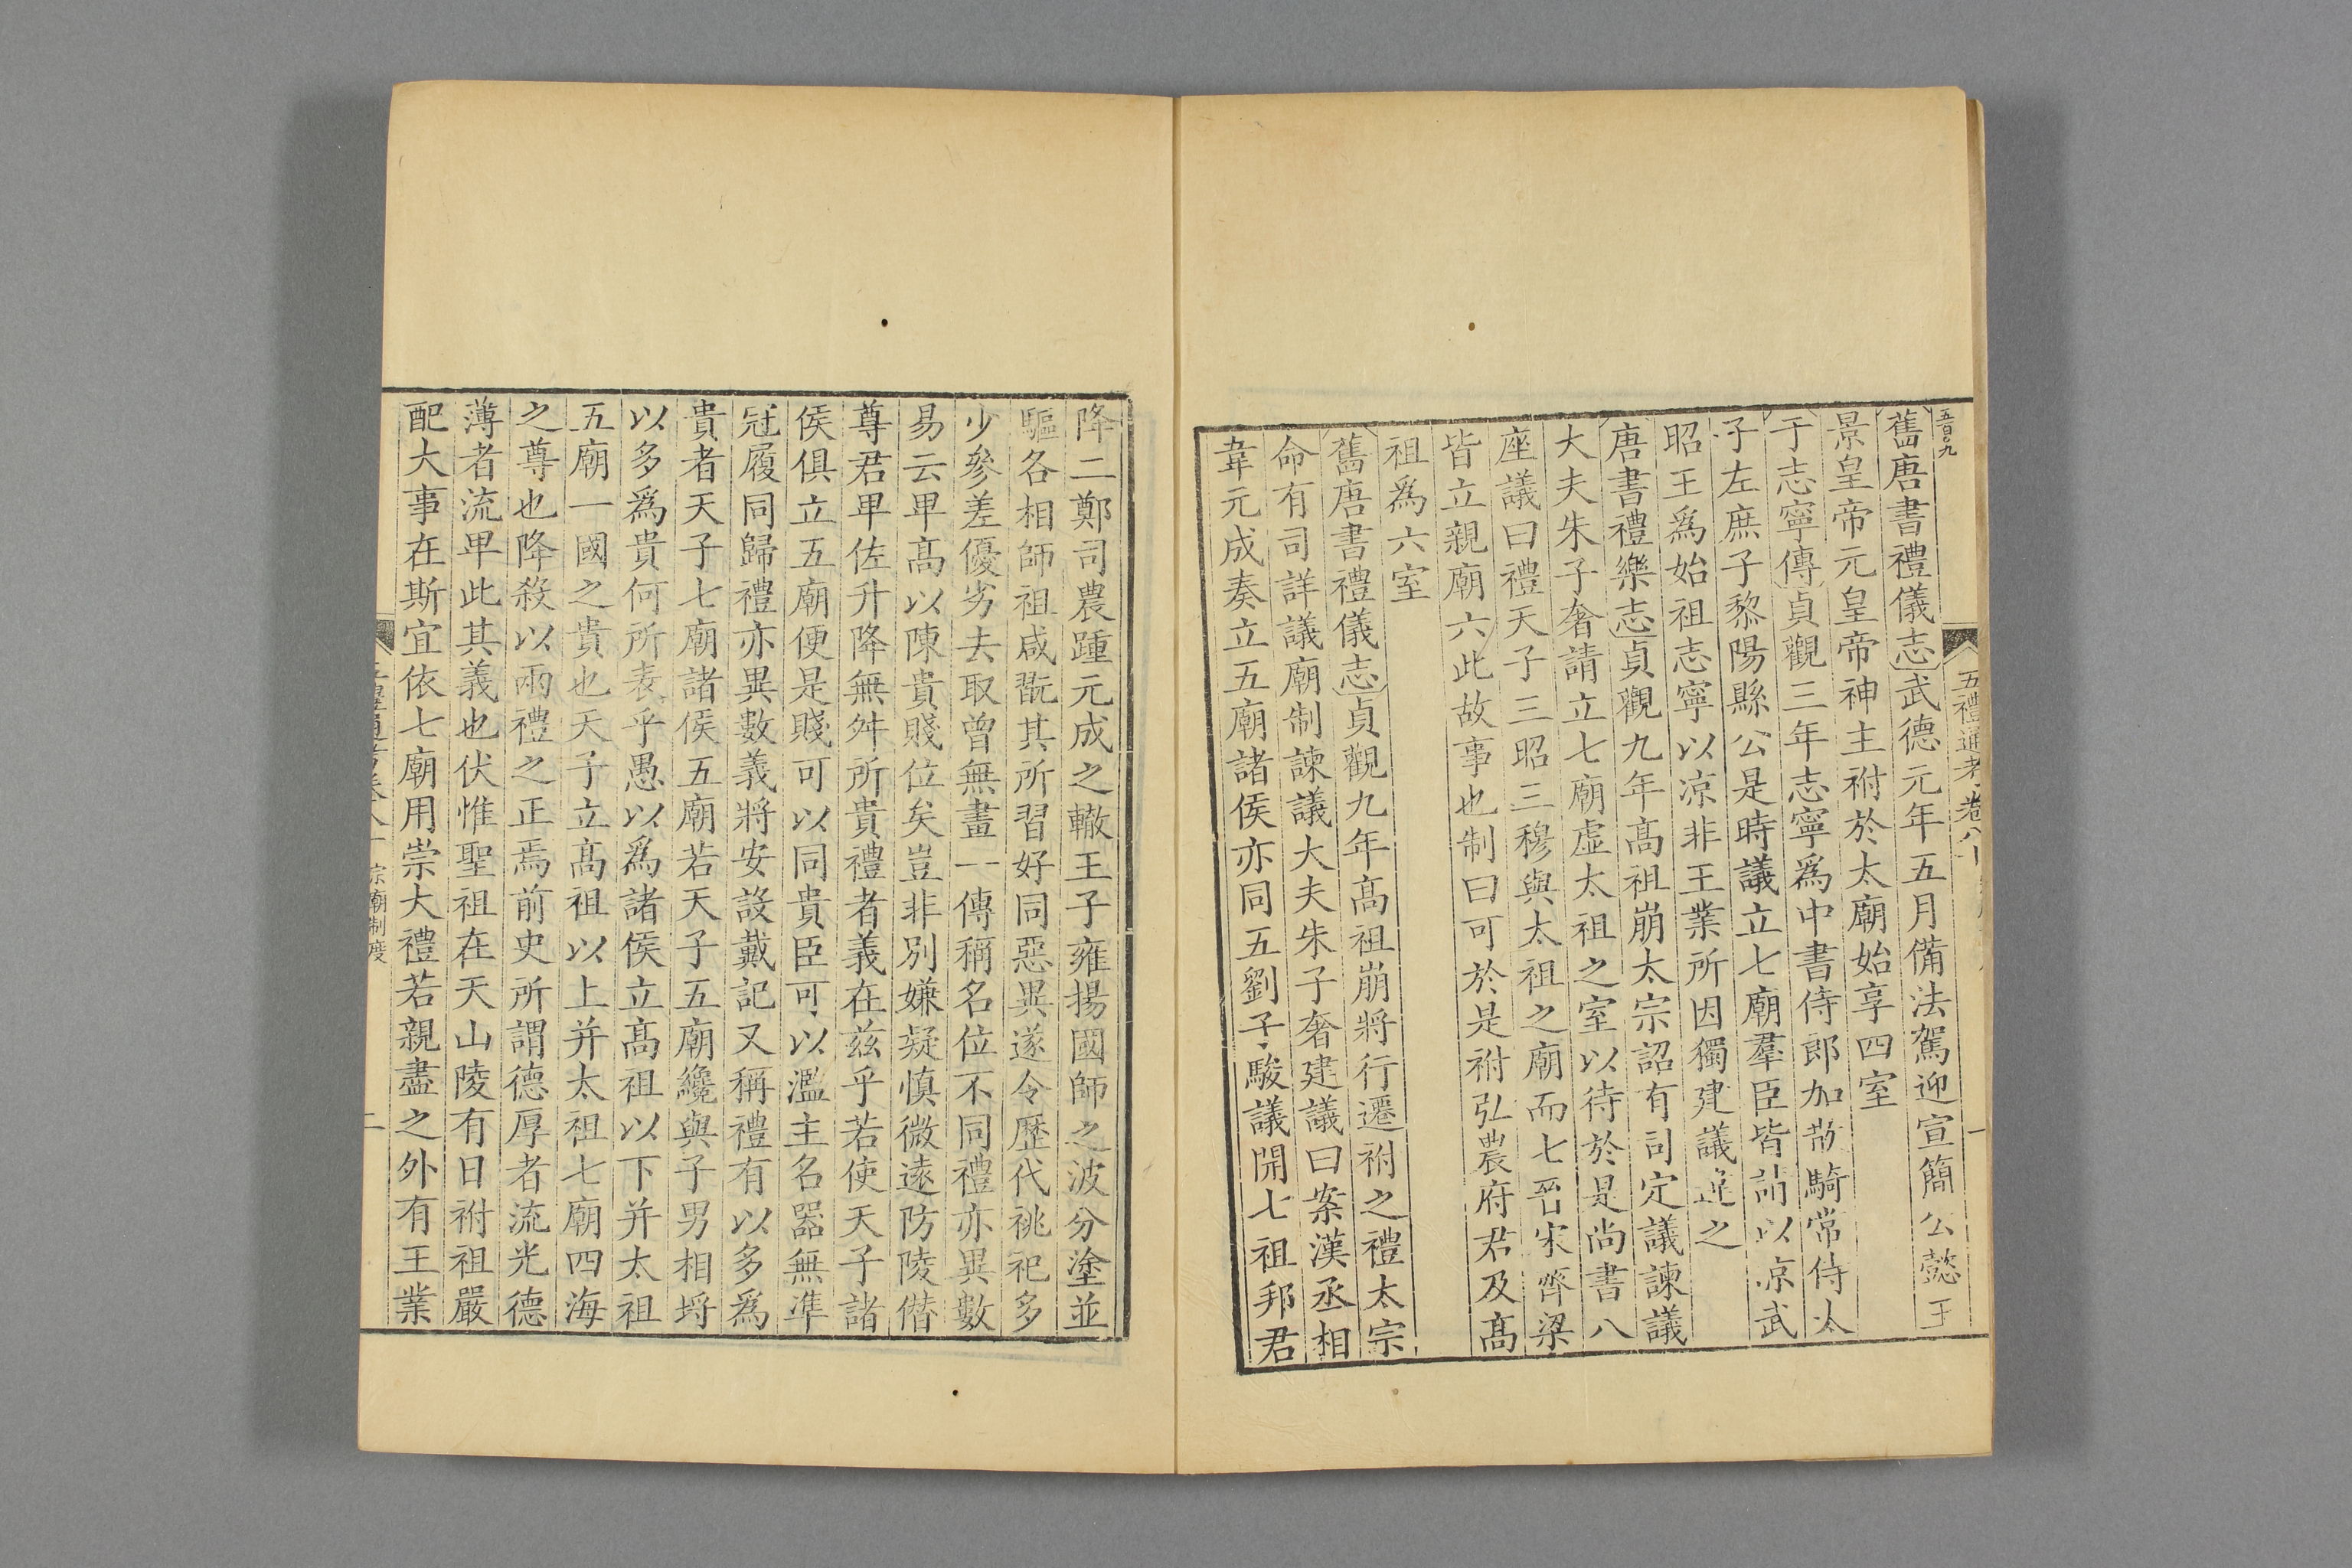 五百九
五禮通考卷八十
一
舊唐書禮儀志武德元年五月備法駕迎宣簡公懿王
景皇帝元皇帝神主祔於太廟始享四室
于志寧傳貞觀三年志寧爲中書侍郎加散騎常侍太
子左庶子黎陽縣公是時議立七廟羣臣皆請以凉武
昭王爲始祖志寧以凉非王業所因獨建議違之
唐書禮樂志貞觀九年高祖崩太宗詔有司定議諫議
大夫朱子奢請立七廟虛太祖之室以待於是尚書八
座議曰禮天子三昭三穆與太祖之廟而七晉宋齊梁
皆立親廟六此故事也制曰可於是祔弘農府君及高
祖爲六室
舊唐書禮儀志貞觀九年高祖崩將行遷祔之禮太宗
命有司詳議廟制諫議大夫朱子奢建議曰案漢丞相
韋元成奏立五廟諸侯亦同五劉子駿議開七祖邦君
降二鄭司農踵元成之轍王子雍揚國師之波分塗並
驅各相師祖咸翫其所習好同惡異遂令歷代祧祀多
少參差優劣去取曾無畫一傳稱名位不同禮亦異數
易云卑高以陳貴賤位矣豈非別嫌疑慎微遠防陵僭
尊君卑佐升降無舛所貴禮者義在茲乎若使天子諸
侯俱立五廟便是賤可以同貴臣可以濫主名器無準
冠履同歸禮亦異數義將安設戴記又稱禮有以多爲
貴者天子七廟諸侯五廟若天子五廟纔與子男相埒
以多爲貴何所表乎愚以爲諸侯立高祖以下并太祖
五廟一國之貴也天子立高祖以上并太祖七廟四海
之尊也降殺以兩禮之正焉前史所謂德厚者流光德
薄者流卑此其義也伏惟聖祖在天山陵有日祔祖嚴
配大事在斯宜依七廟用崇大禮若親盡之外有王業
宗廟制度
二